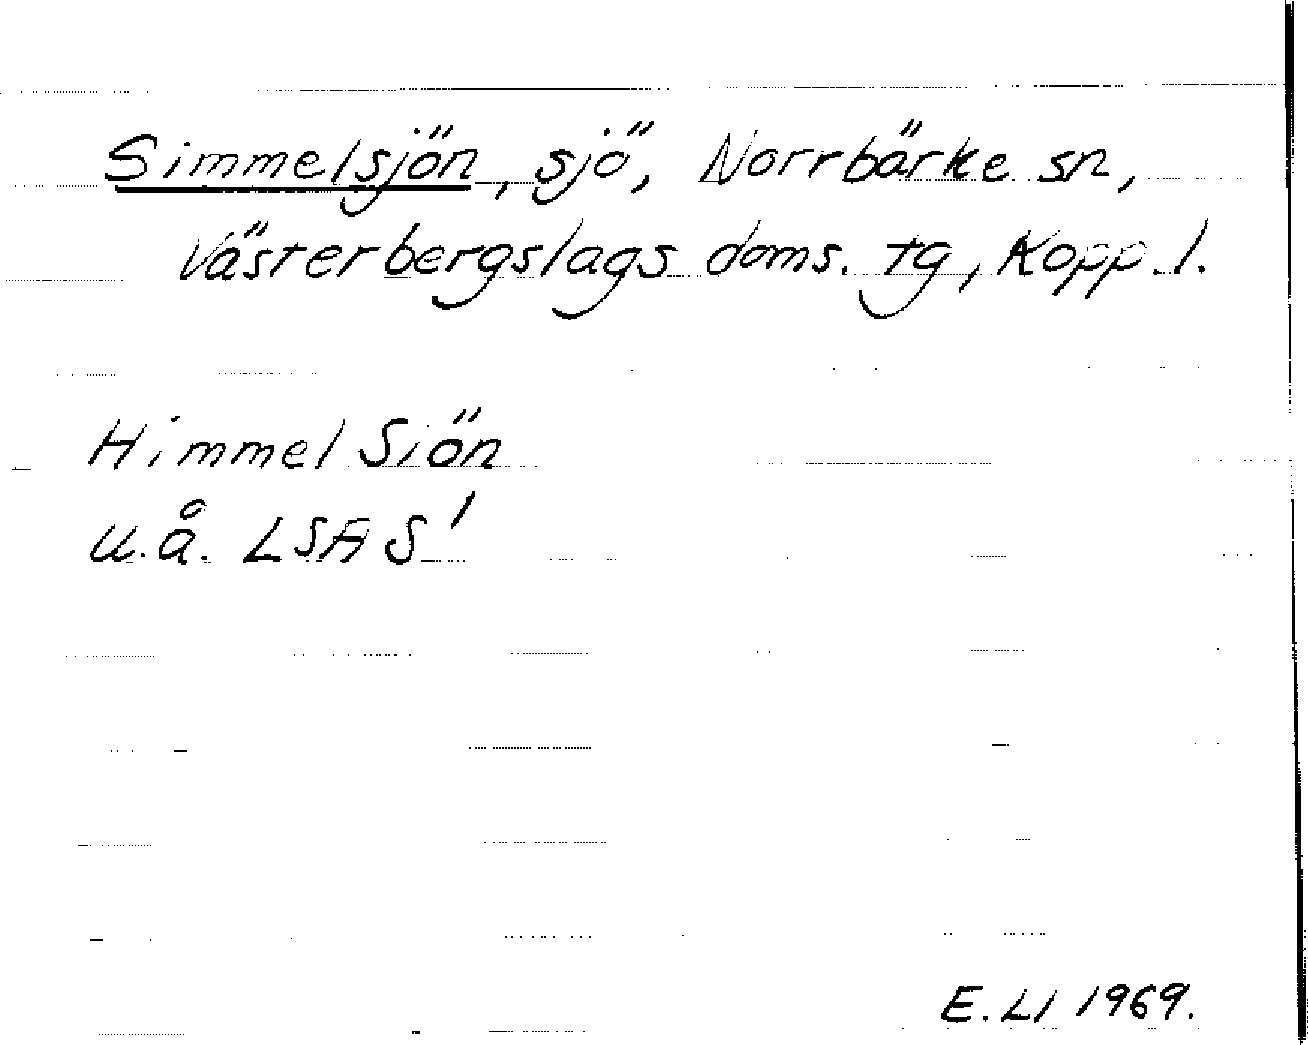 Simmelsjön, sjö, Norrbärke sn,
Västerbergslags doms. tg, Kopp. l.
Himmel Siön
u.å. LSA S¹
E. LI 1969.